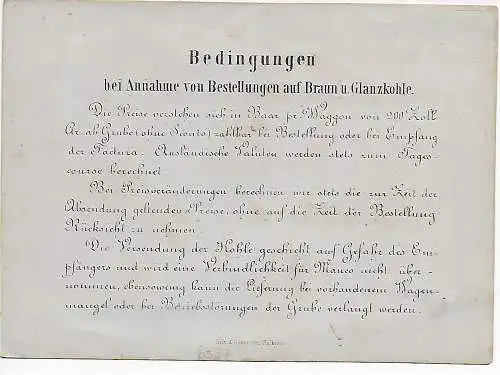 Bedingungen
bei Annahme von Bestellungen auf Braun u. Glanzkohle.
Die Preise verstehen sich in Baar pr. Waggon von 200 Zoll
Ctr. ab Grube (ohne Sconto) zahlbar bei Bestellung oder bei Empfang
der Factura. Ausländische Valuten werden stets zum Tages-
course berechnet.
Bei Preisveränderungen berechnen wir stets die zur Zeit der
Absendung geltenden Preise, ohne auf die Zeit der Bestellung
Rücksicht zu nehmen.
Die Versendung der Kohle geschieht auf Gefahr des Em-
pfängers und wird eine Verbindlichkeit für Manco nicht über-
nommen, ebensowenig kann die Lieferung bei vorhandenem Wagen-
mangel oder bei Betriebsstörungen der Grube verlangt werden.